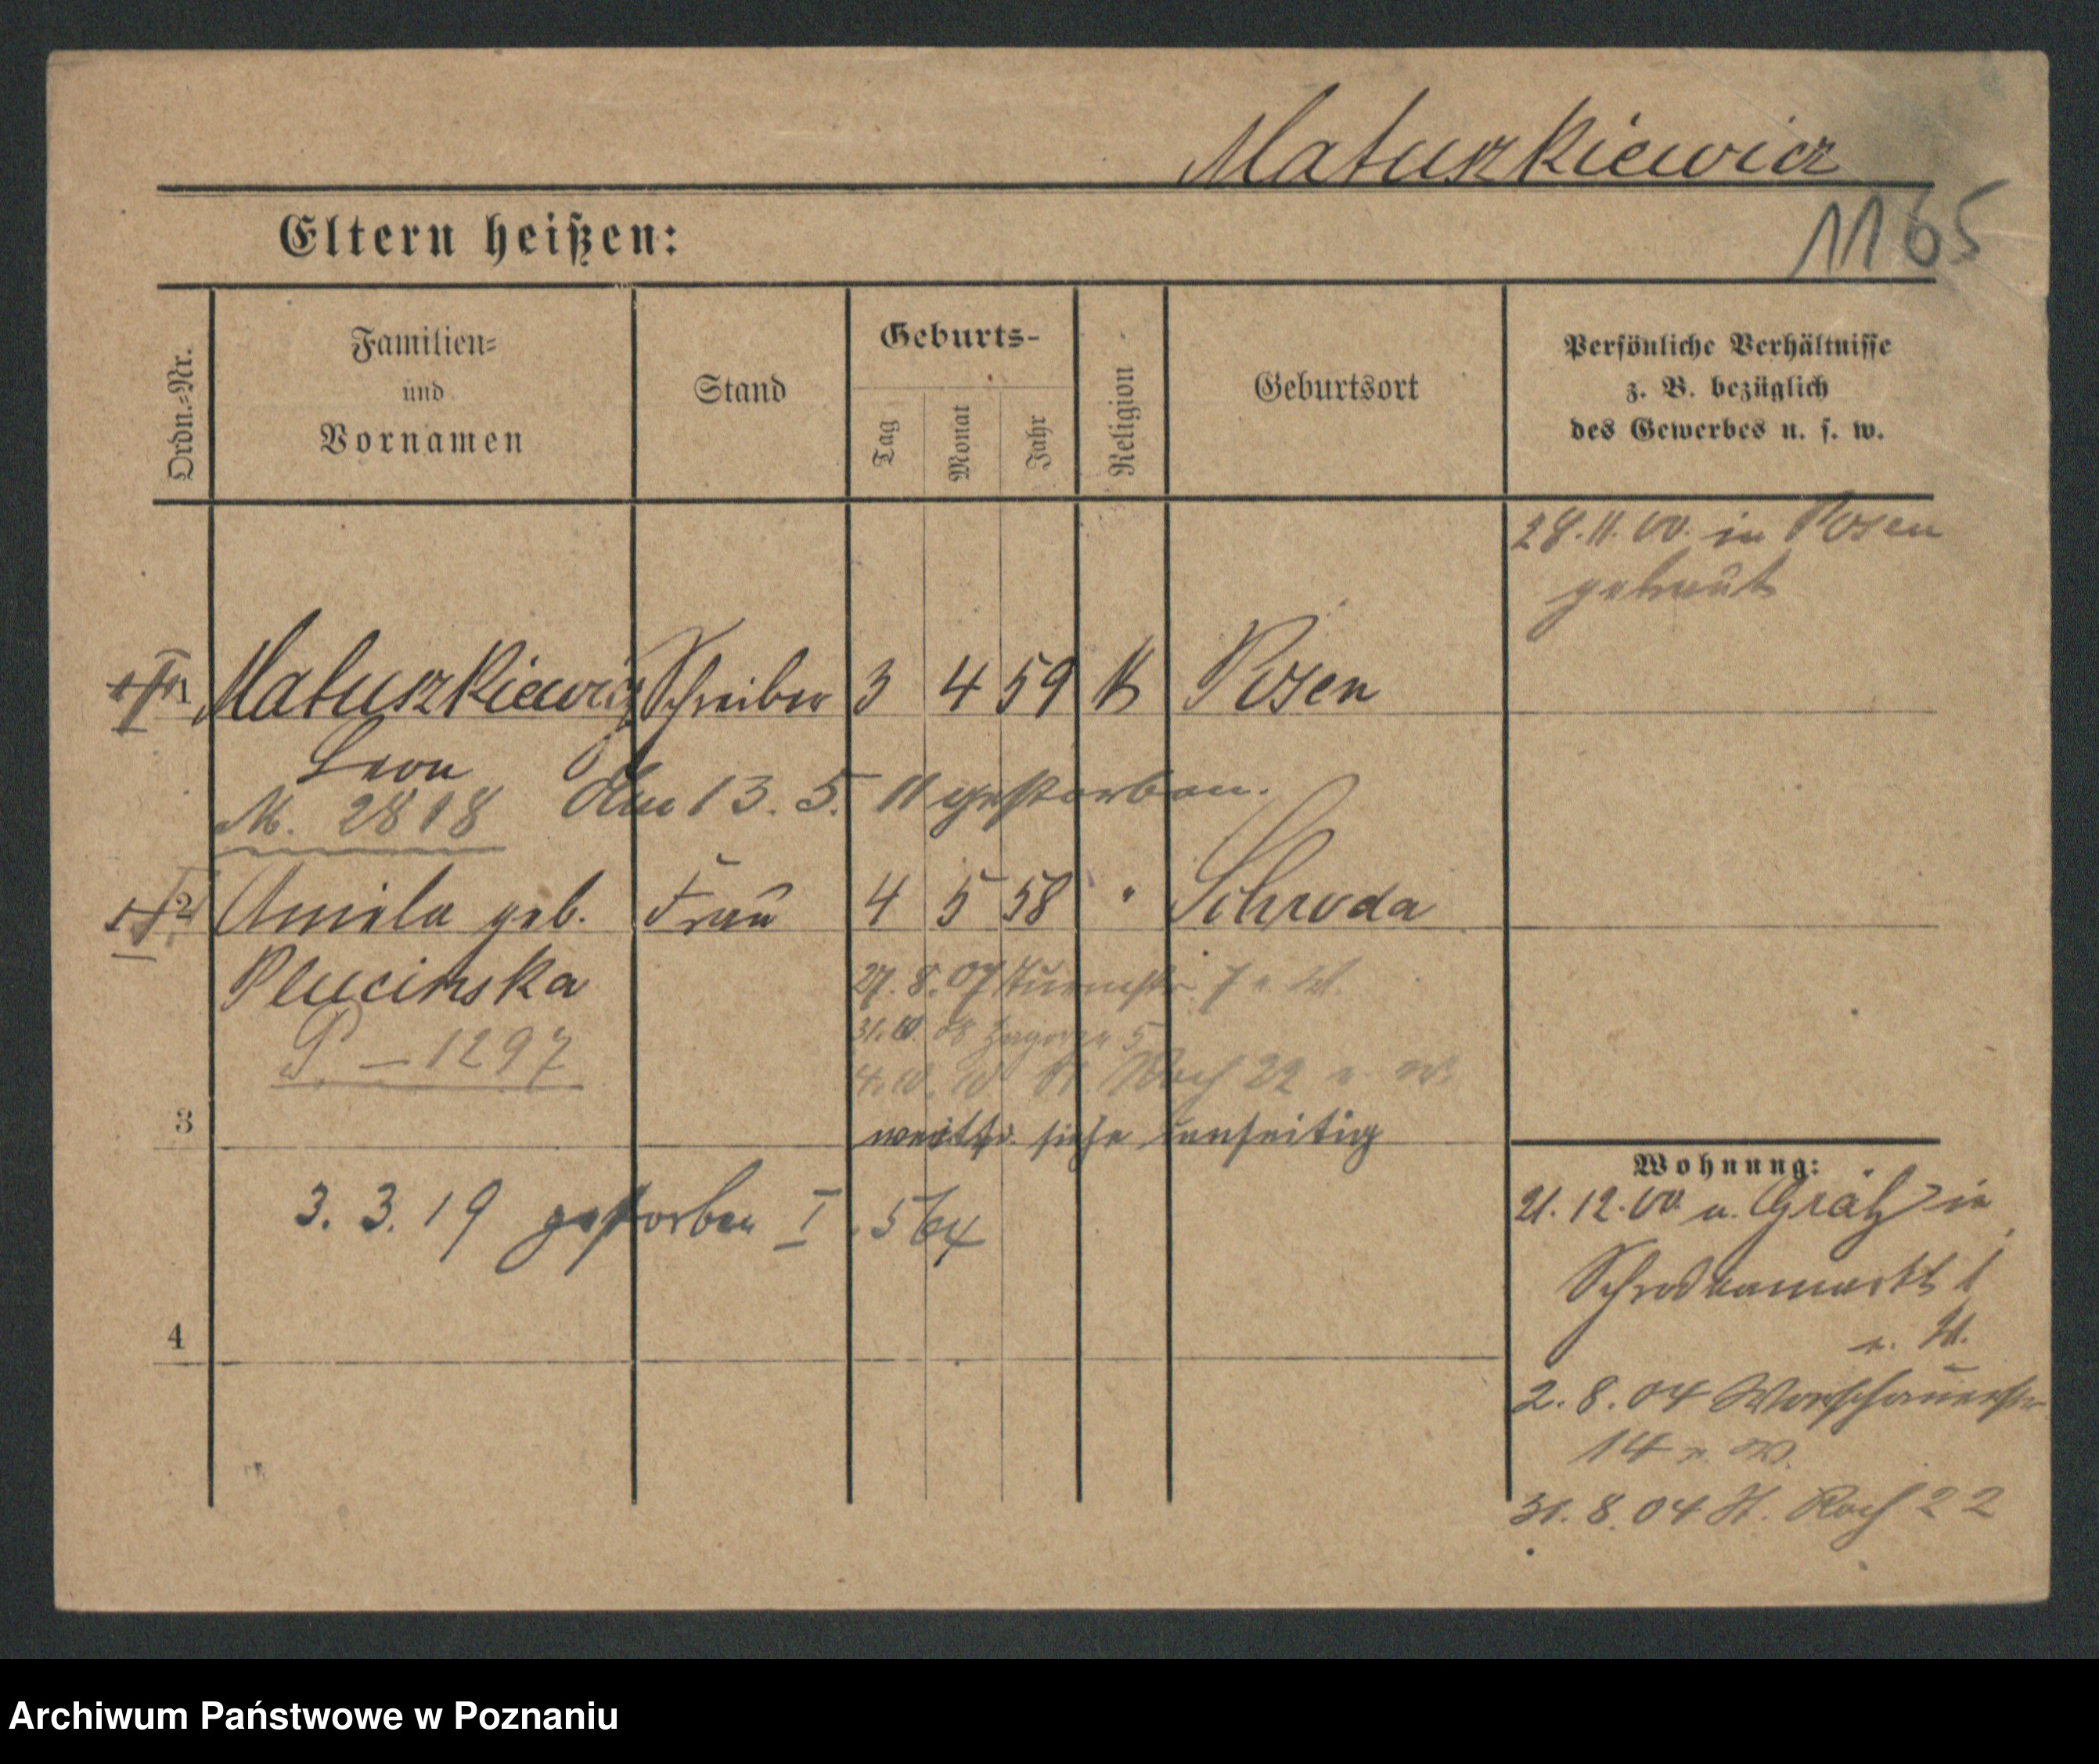 Matuszkiewicz
1165
Eltern heißen:
Ordn.=Nr.
Familien=
und
Vornamen
Stand
Geburts-
Tag
Monat
Jahr
Religion
Geburtsort
Persönliche Verhältnisse
z. B. bezüglich
des Gewerbes u. s. w.
28.11.00. in Posen
getraut
1 Matuszkiewicz Schreiber 3 4 59 K Posen
Leon
Am 13. 5. 11 gestorben.
M. 2818
2 Aniela geb. Frau 4 5 58 " Schroda
Plucinska
27. 8. 07 Turmstr. 7
P. – 1297
31. 10. 08 Zagorze 5
22
3
weiter siehe umseitig
3. 3. 19 gestorben I. 564
4
Wohnung:
21. 12. 00. a. Grätz in
Schrodkamarkt 1
2. 8. 04 Warschauerstr
14
31. 8. 04 St. Roch 22
Archiwum Państwowe w Poznaniu